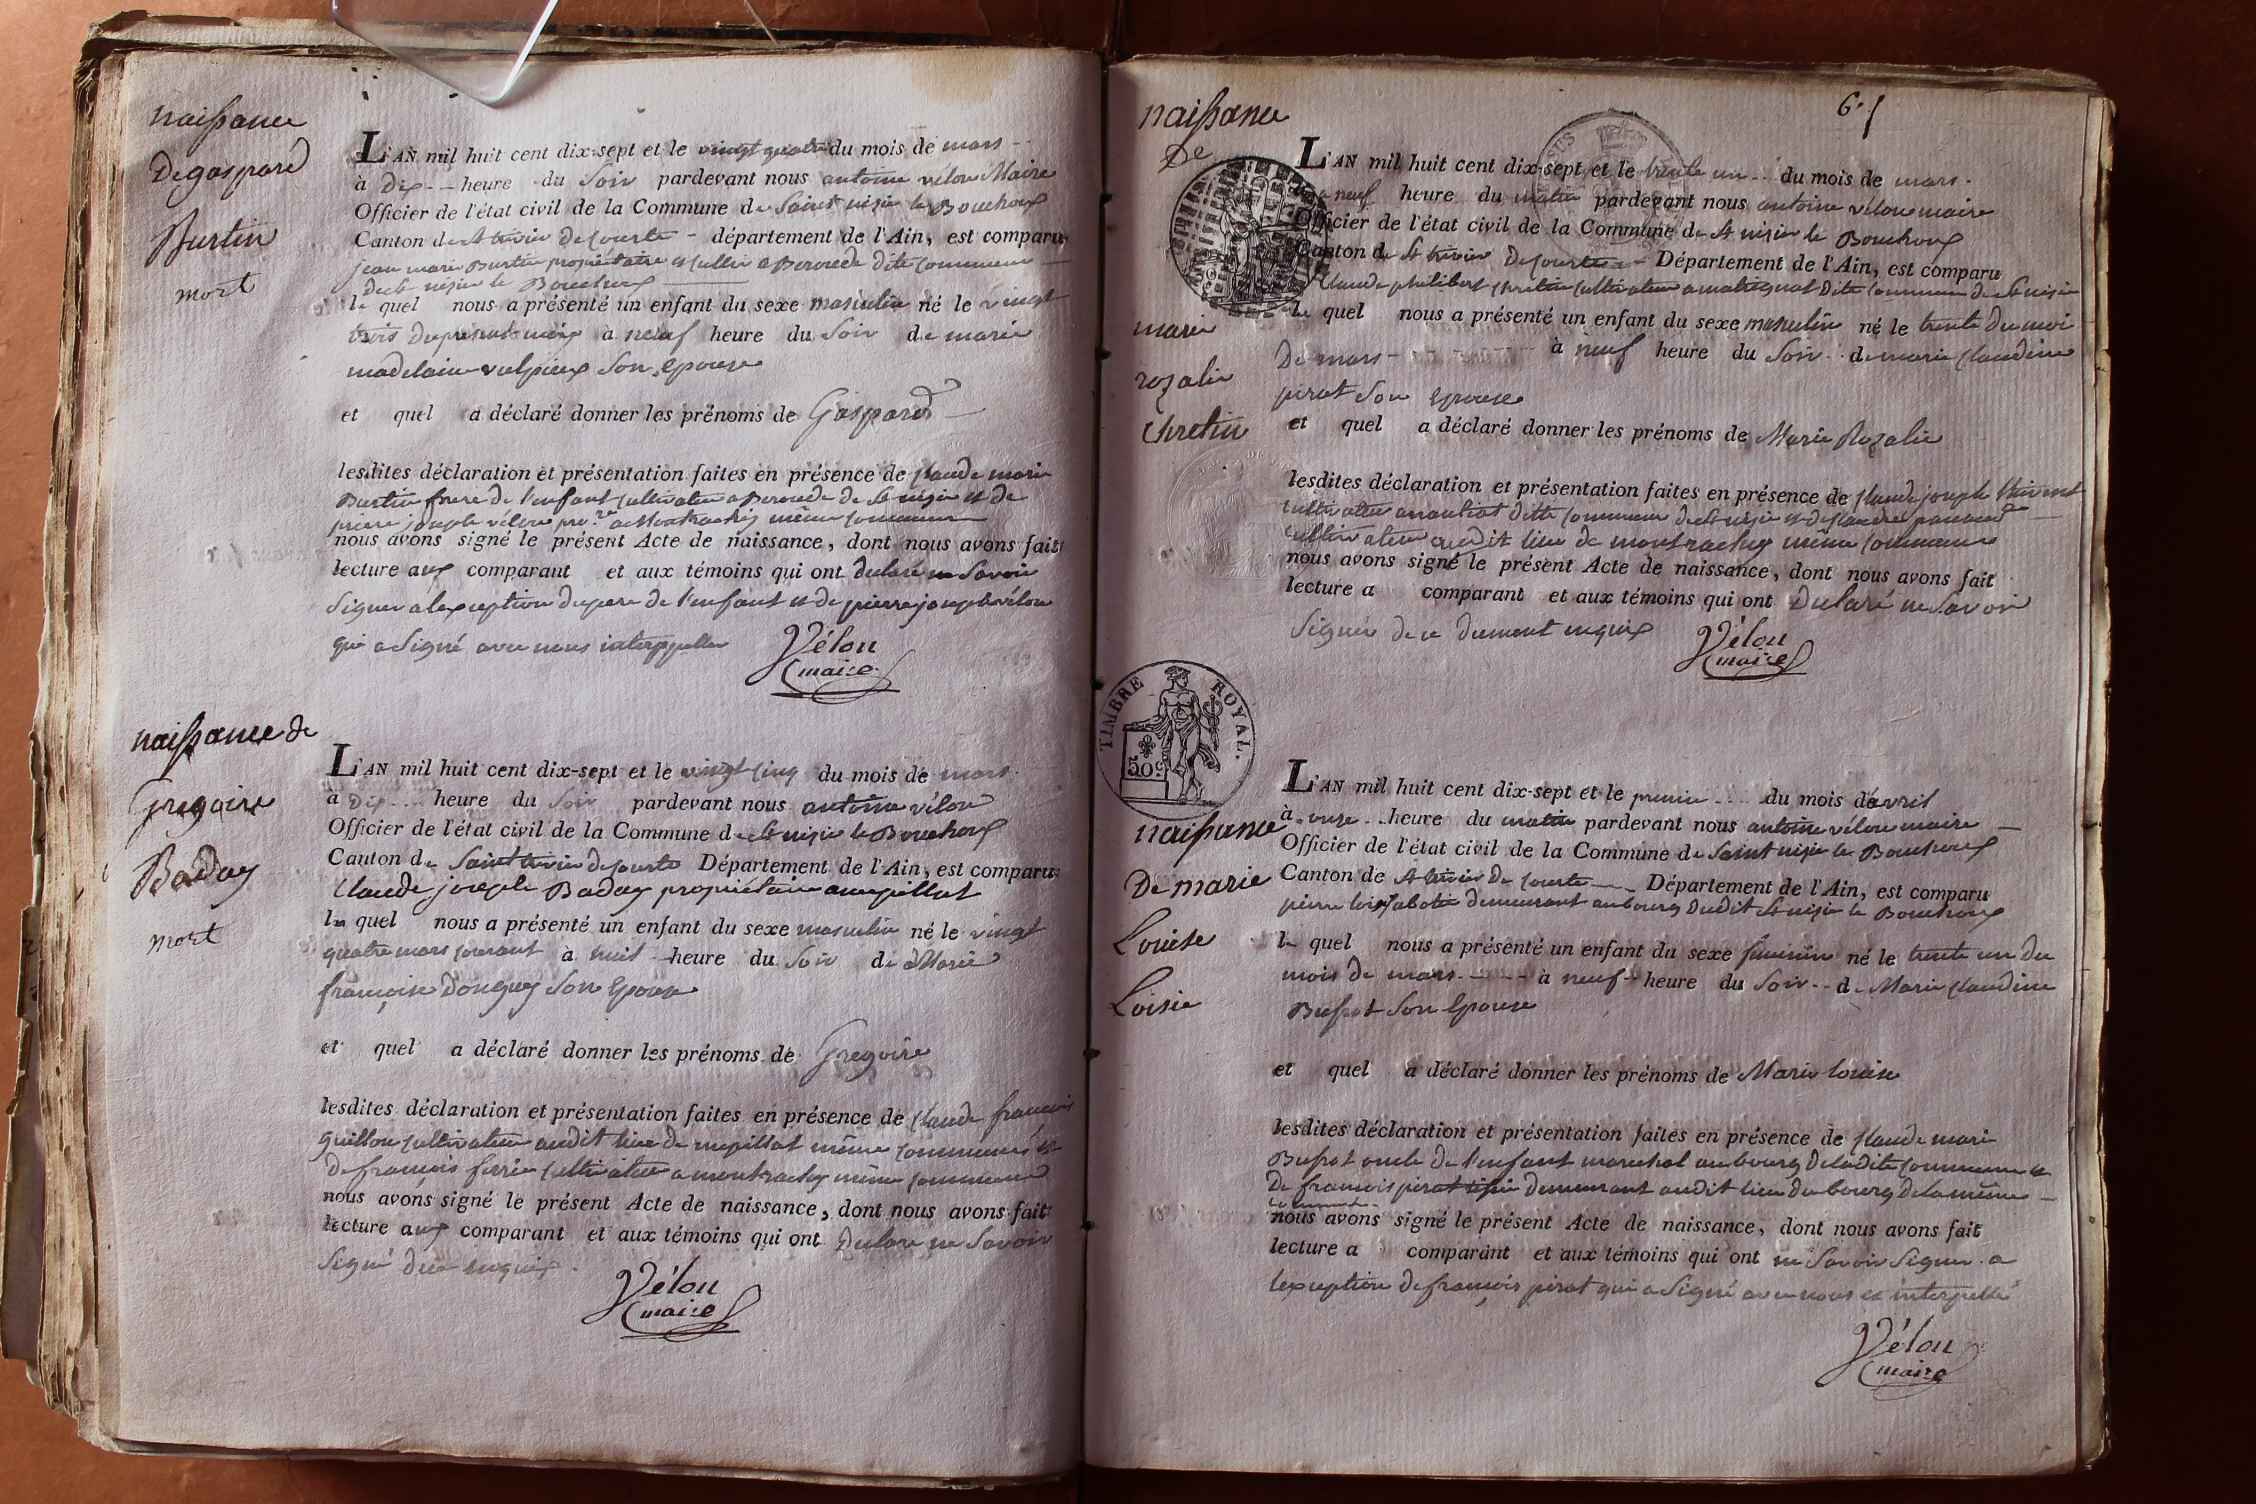 naissance
De gaspard
Burtin
mort
L'AN mil huit cent dix-sept et le vingt quatre du mois de mars
à Dix heure du Soir pardevant nous antoine vélon Maire
Officier de l'état civil de la Commune de Saint nizier le Bouchoux
Canton de St trivier De Courte département de l'Ain, est comparu
jean marie Burtin propriétaire et cultiv a Dite commune
de St nizier le Bouchoux
le quel nous a présenté un enfant du sexe masculin né le vingt
trois Du présent mois à neuf heure du Soir de marie
madelaine vulpieux Son epouse
et quel a déclaré donner les prénoms de Gaspard
lesdites déclaration et présentation faites en présence de Claude marie
Burtin frere de l'enfant cultivateur a de St nizier et de
pierre joseph vélon pro.re a Montrachy même commune
nous avons signé le présent Acte de naissance, dont nous avons fait
lecture aux comparant et aux témoins qui ont declaré ne Savoir
Signer a lexception du pere de l'enfant et de pierre joseph vélon
qui a Signé avec nous interppeller
Vélon
maire
naissance de
Gregoire
Baday
mort
L'AN mil huit cent dix-sept et le vingt cinq du mois de mars
à Dix heure du Soir pardevant nous antoine vélon
Officier de l'état civil de la Commune de St nizier le Bouchoux
Canton de Saint trivier de Courte Département de l'Ain, est comparu
Claude joseph Baday propriétaire a
le quel nous a présenté un enfant du sexe masculin né le vingt
quatre mars courant à huit heure du Soir de Marie
françoise Donguy Son Epouse
et quel a déclaré donner les prénoms de Gregoire
lesdites déclaration et présentation faites en présence de Claude françois
Guillon cultivateur audit lieu de même commune et
De françois ferrier cultivateur a montrachy même commune
nous avons signé le présent Acte de naissance, dont nous avons fait
lecture aux comparant et aux témoins qui ont Declaré ne Savoir
Signé de ce enquis
Vélon
maire
6.
naissance
De
marie
rozalie
Chretin
L'AN mil huit cent dix-sept et le trente un du mois de mars
neuf heure du matin pardevant nous antoine vélon maire
Officier de l'état civil de la Commune de St nizier le Bouchoux
Canton de St trivier De Courte Département de l'Ain, est comparu
Claude philibert chretin cultivateur a Dite commune de St nizier
le quel nous a présenté un enfant du sexe masculin né le trente du moi
De mars à neuf heure du Soir de marie Claudine
pirat Son Epouse
et quel a déclaré donner les prénoms de Marie Rozalie
lesdites déclaration et présentation faites en présence de Claude joseph
cultivateur Dite commune de St nizier et de Claude
cultivateur audit lieu de montrachy même commune
nous avons signé le présent Acte de naissance, dont nous avons fait
lecture a comparant et aux témoins qui ont Declaré ne Savoir
Signer de ce Dument enquis
Vélon
maire
TIMBRE ROYAL.
50c
naissance
De marie
Louise
Loisie
L'AN mil huit cent dix-sept et le premier du mois d'avril
à onze heure du matin pardevant nous antoine vélon maire
Officier de l'état civil de la Commune de Saint nizier le Bouchoux
Canton de St trivier De Courte Département de l'Ain, est comparu
pierre demeurant au bourg Dudit St nizier le Bouchoux
le quel nous a présenté un enfant du sexe feminin né le trente un du
mois de mars à neuf heure du Soir de Marie Claudine
Bufat Son Epouse
et quel a déclaré donner les prénoms de Marie Louise
lesdites déclaration et présentation faites en présence de Claude marie
Bufat oncle de l'enfant marechal au bourg de ladite commune et
De francois pirat demeurant audit lieu du bourg de la même
commune
nous avons signé le présent Acte de naissance, dont nous avons fait
lecture a comparant et aux témoins qui ont ne Savoir Signer a
lexception de francois pirat qui a Signé avec nous interpellé
Vélon
maire